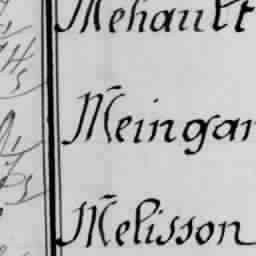 Mehault
Meingar
Melisson